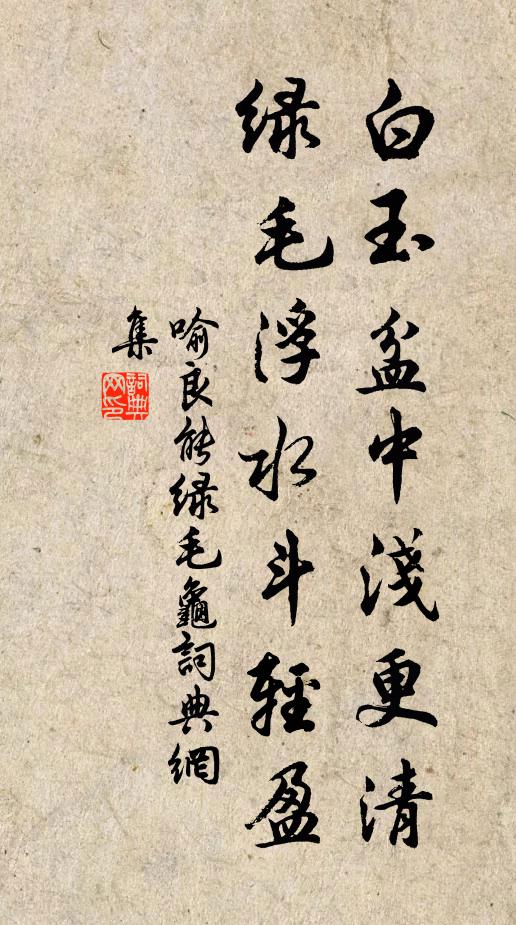 白玉盆中淺更清
綠毛浮水斗輕盈
喻良能綠毛龜詞典網
集
詞典
網印